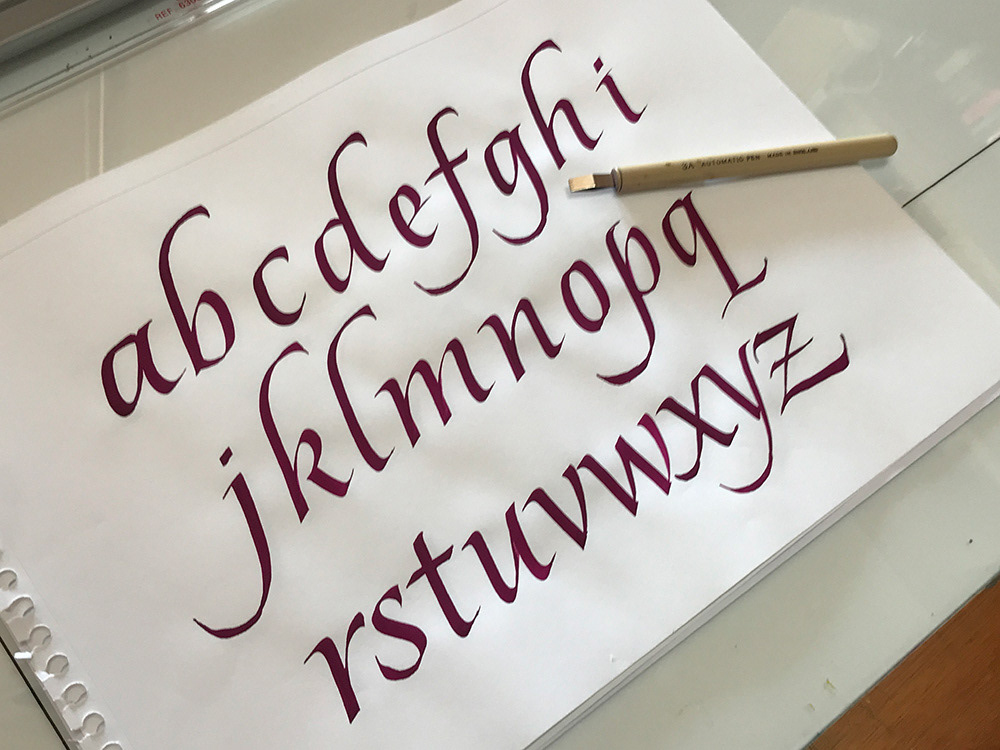 REF
abcdefghi
3A "AUTOMATIC" PEN MADE IN ENGLAND
jklmnopq
rstuvwxyz